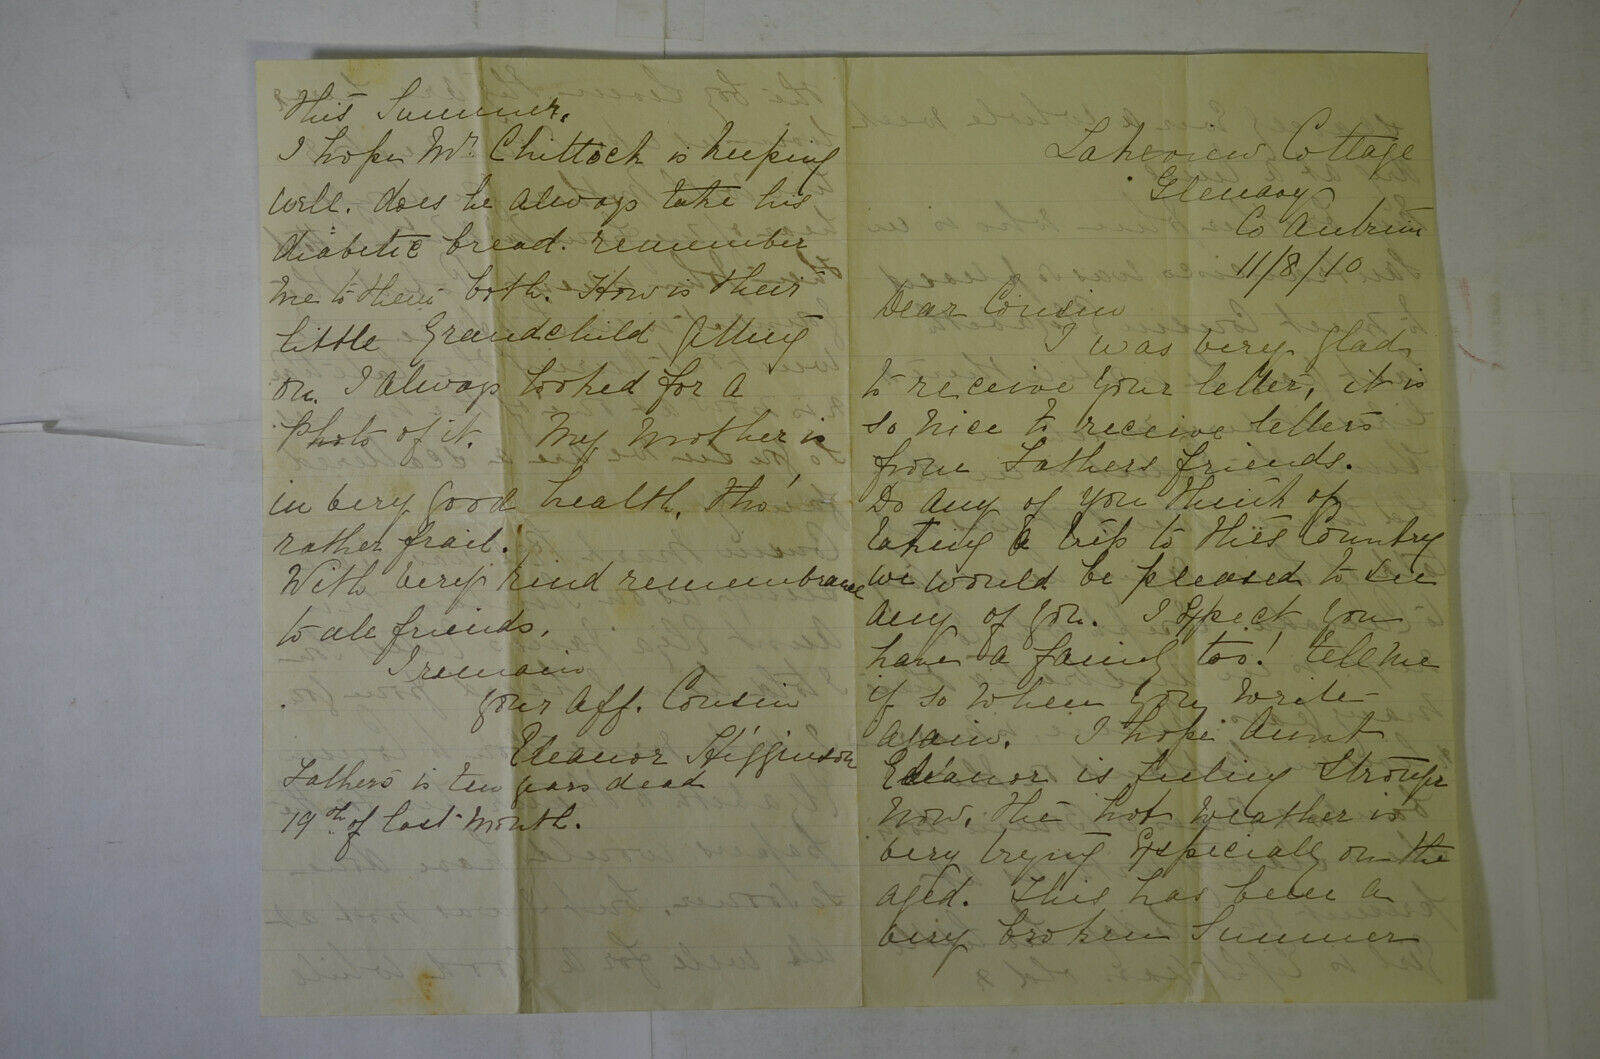 Lakeview Cottage
Glenavy
Co Antrim
11/8/10
Dear Cousin
I was very glad
to receive your letter, it is
so nice to receive letters
from Fathers friends.
Do any of you think of
taking a trip to this Country
we would be pleased to see
any of you. I Expect you
have a family too! tell me
if so when you write
again. I hope Aunt
Eleanor is feeling stronger
now, the hot weather is
very trying Especially on the
aged. This has been a
very broken Summer
This Summer.
I hope Mr Chittock is keeping
well. does he always take his
diabetic bread. remember
me to them both. How is their
little Grandchild getting
on. I always looked for a
Photo of it. My Mother is
in very good health, tho'
rather frail.
With very kind remembrance
to all friends.
I remain
your Aff. Cousin
Eleanor Higginson
Fathers is ten years dead
19th of last Month.